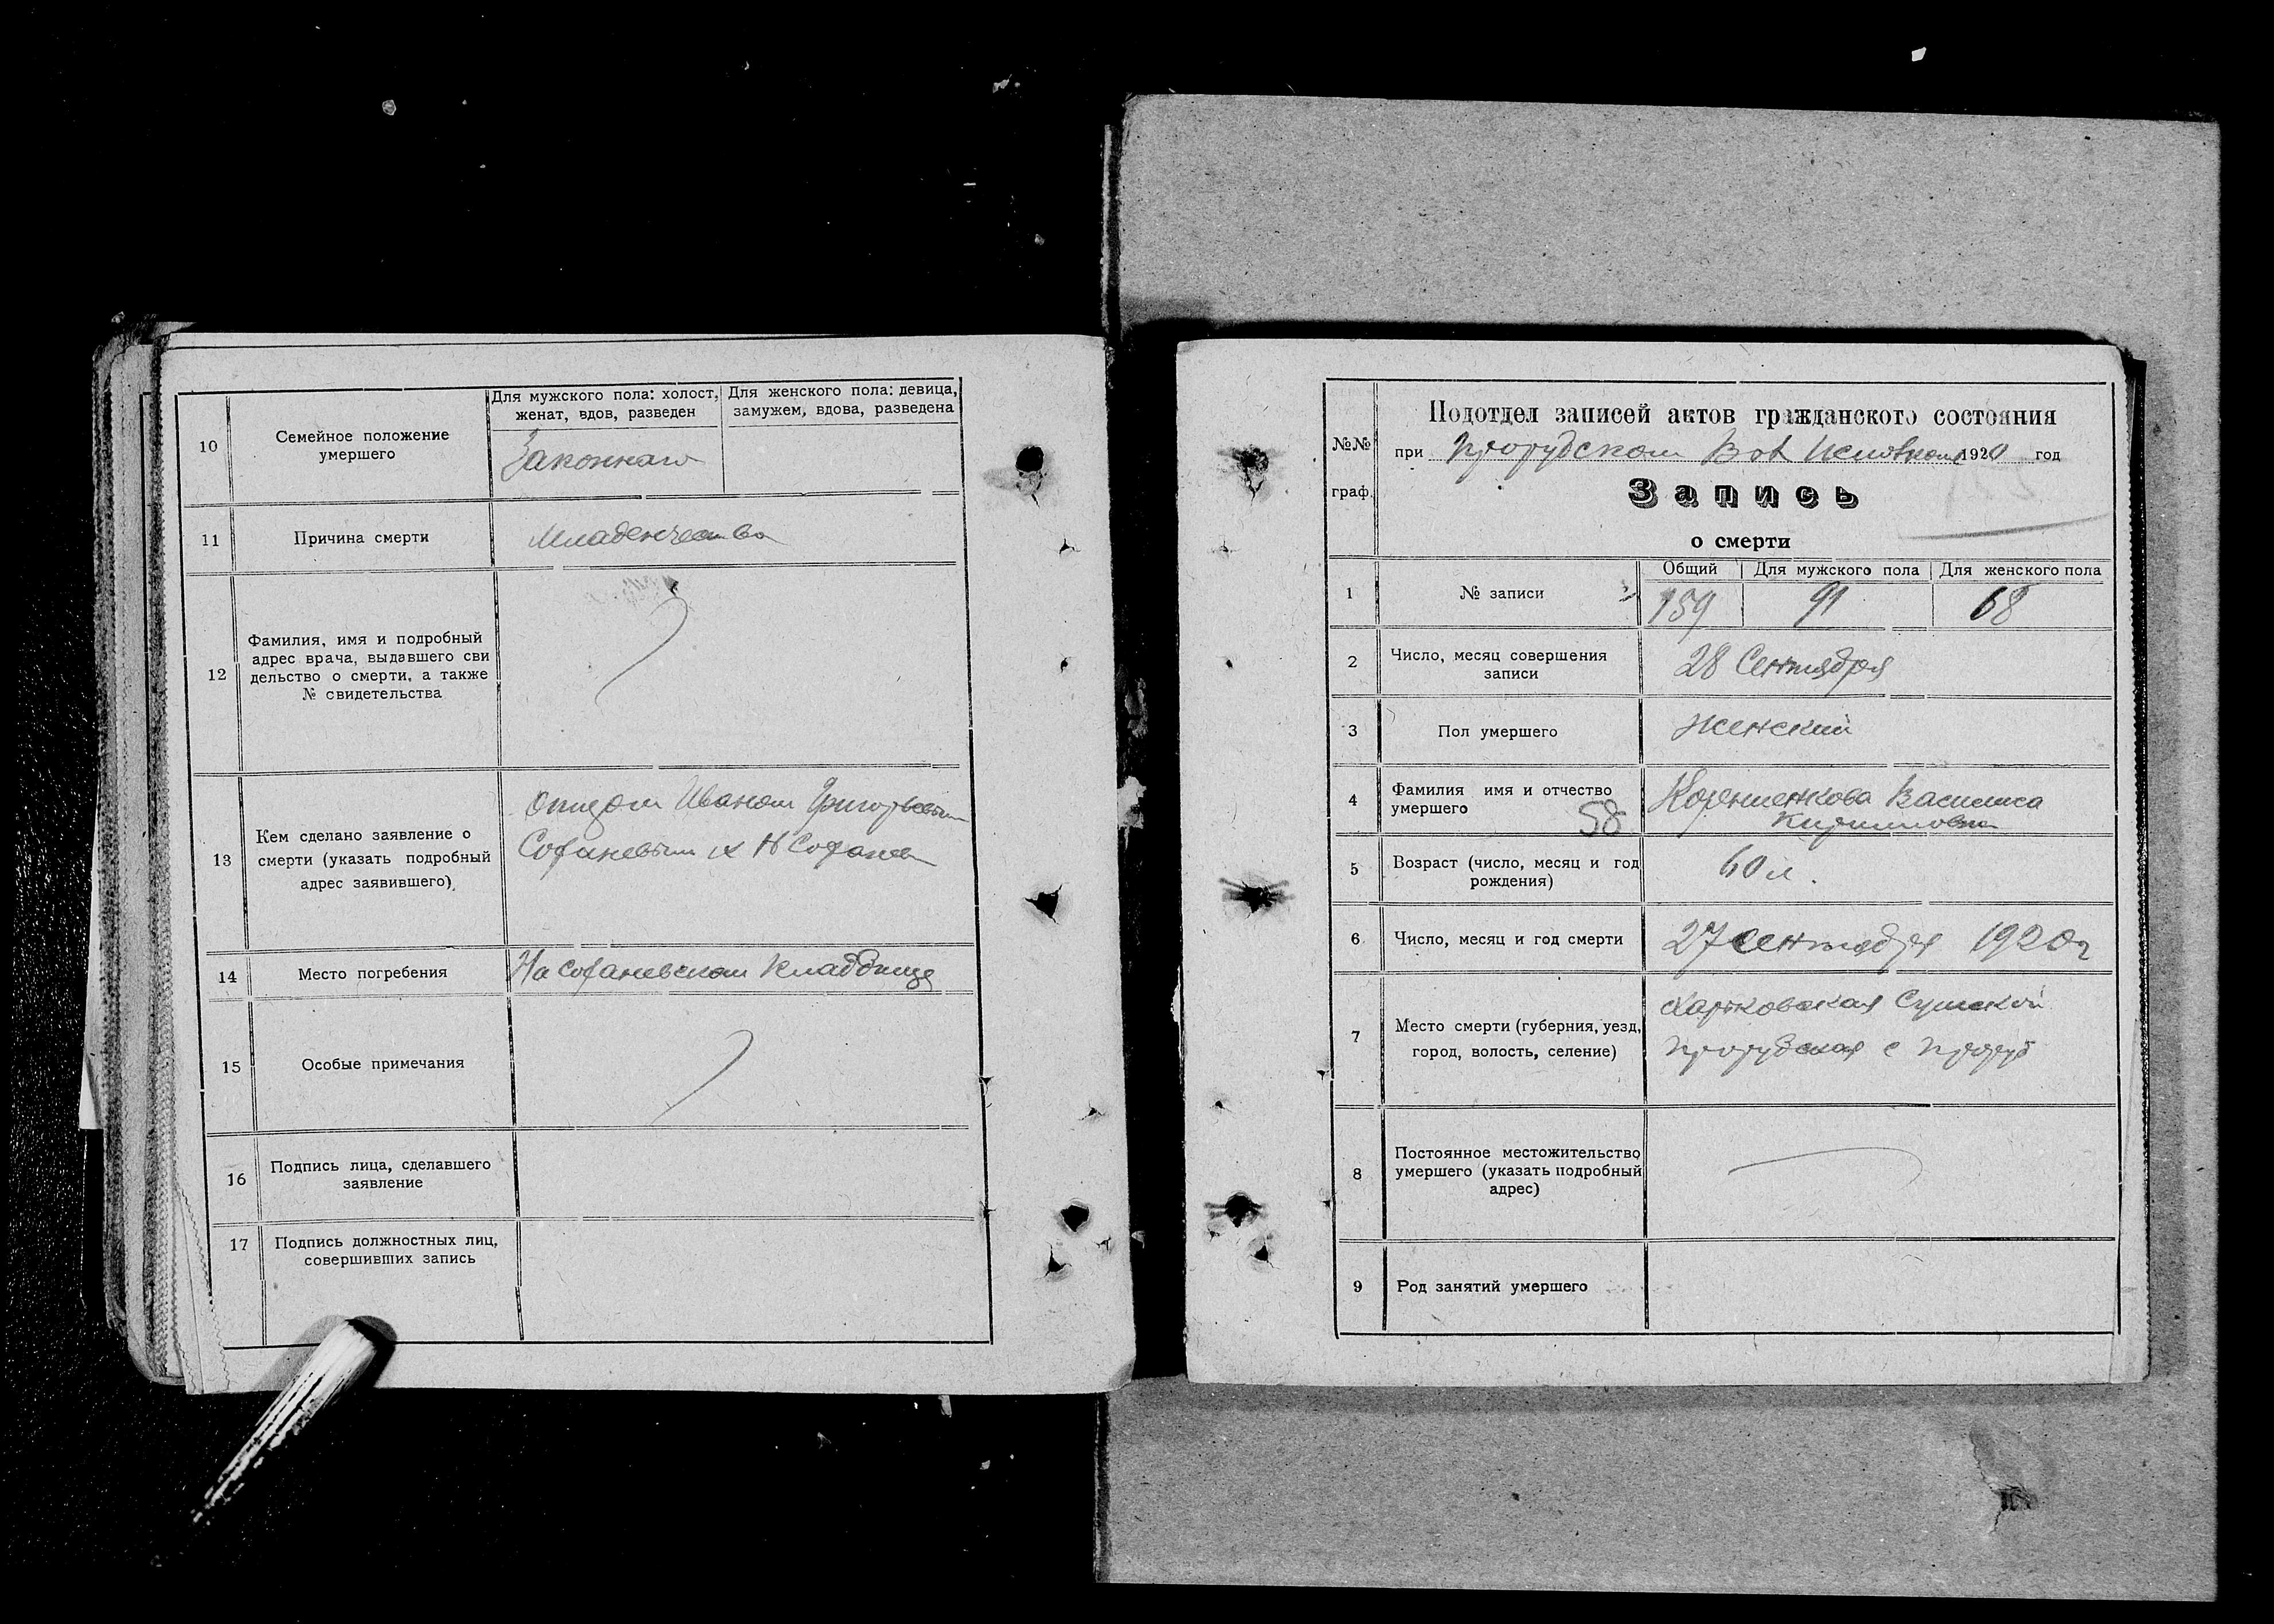 10
Семейное положение
умершего
Для мужского пола: холост,
женат, вдов, разведен
Для женского пола: девица,
замужем, вдова, разведена
Законнаго
11
Причина смерти
Младенчество
12
Фамилия, имя и подробный
адрес врача, выдавшего сви
дельство о смерти, а также
№ свидетельства
13
Кем сделано заявление о
смерти (указать подробный
адрес заявившего)
отцом Иваном Григорьевым
14
Место погребения
На кладбище
15
Особые примечания
16
Подпись лица, сделавшего
заявление
17
Подпись должностных лиц,
совершивших запись
№№
граф.
Подотдел записей актов гражданского состояния
при Прорубском Вол Исполкоме 1920 год
Запись
о смерти
Общий
Для мужского пола
Для женского пола
1
№ записи
159
91
68
2
Число, месяц совершения
записи
28 Сентября
3
Пол умершего
женский
4
Фамилия имя и отчество
умершего
58
Василиса
Кириловна
5
Возраст (число, месяц и год
рождения)
60 л.
6
Число, месяц и год смерти
27 сентября 1920г
7
Место смерти (губерния, уезд,
город, волость, селение)
Харьковская Сумский
Прорубская с Проруб
8
Постоянное местожительство
умершего (указать подробный
адрес)
9
Род занятий умершего